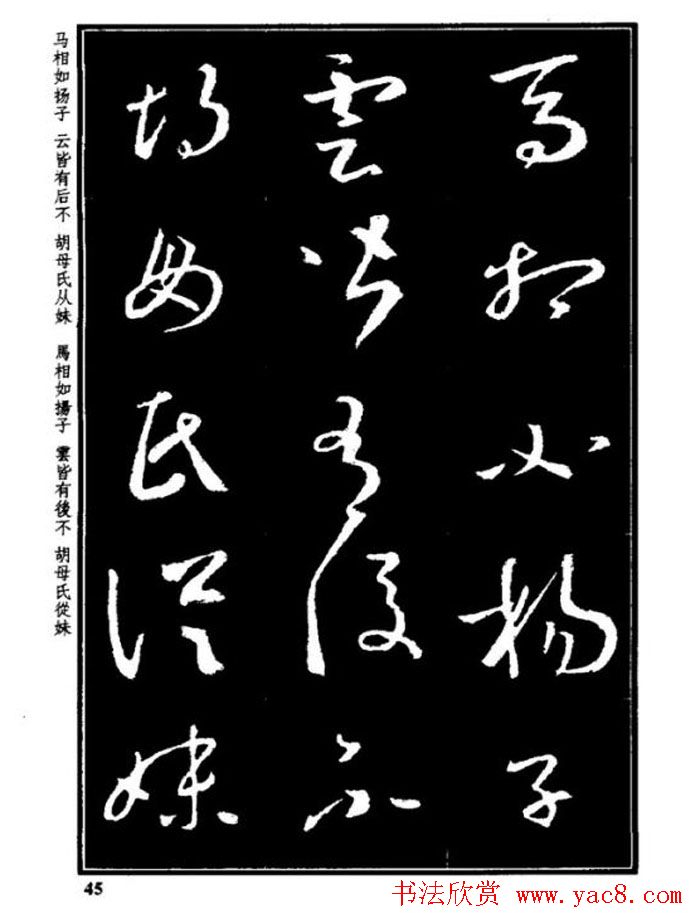 馬相如揚子
雲皆有後不
胡母氏從妹
马相如扬子 云皆有后不 胡母氏从妹 馬相如揚子 雲皆有後不 胡母氏從妹
45
书法欣赏 www.yac8.com